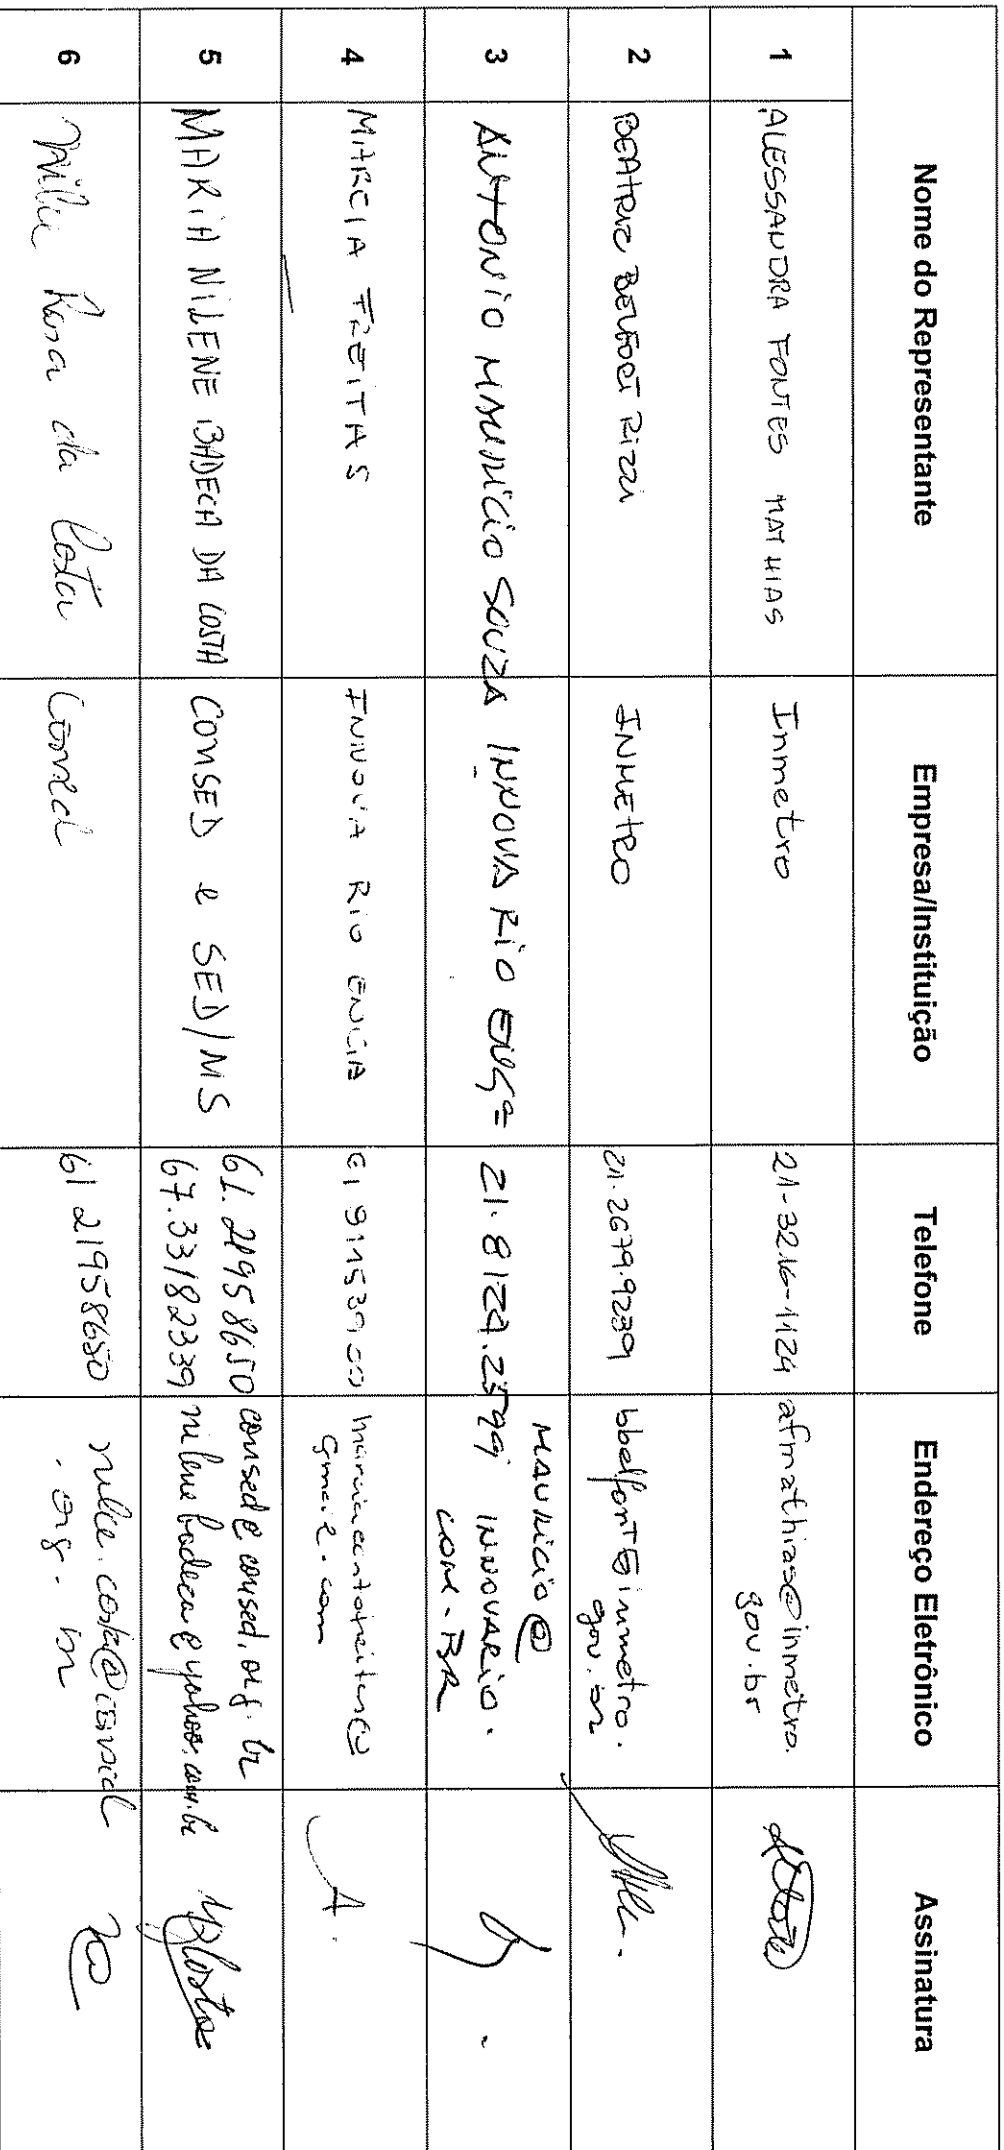 Nome do Representante Empresa/Instituição Telefone Endereço Eletrônico Assinatura
1 ALESSANDRA FONTES MATHIAS Inmetro 21-3216-1124 afmathias@inmetro.
gov.br
2 BEATRIZ BELFORT RIZZI INMETRO 21.2679.9289 bbelfort@inmetro.
gov.br
3 ANTONIO MAURÍCIO SOUZA INNOVA RIO ENGª 21.8124.2599 MAURICIO@
INNOVARIO.
COM.BR
4 MARCIA FREITAS INNOVA RIO ENGIA
gmail.com
5 MARIA NILENE BADECA DA COSTA CONSED e SED/MS 61.21958650 consed@consed.org.br
67.33182339 nilenebadeca@yahoo.com.br
6 Nilce Rosa da Costa Consed 61 21958650 nilce.costa@consed
.org.br